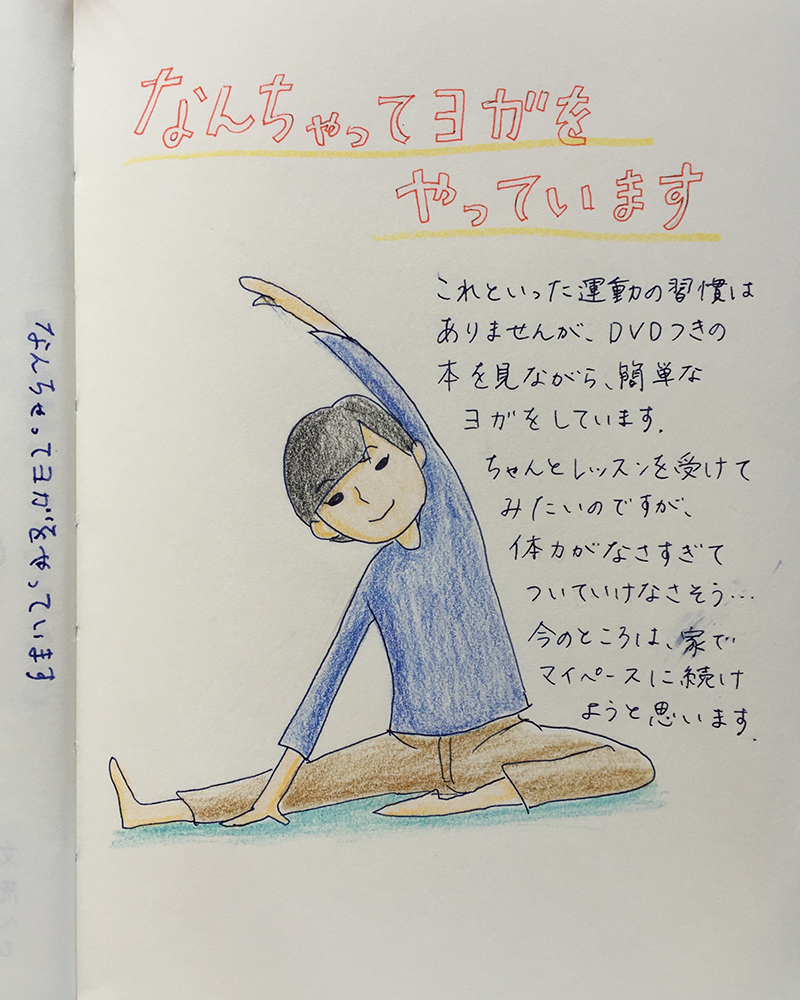 なんちゃってヨガを
やっています
これといった運動の習慣は
ありませんが、DVDつきの
本を見ながら、簡単な
ヨガをしています.
ちゃんとレッスンを受けて
みたいのですが、
体力がなさすぎて
ついていけなさそう…
今のところは、家で
マイペースに続け
ようと思います.
なんちゃってヨガをやっています